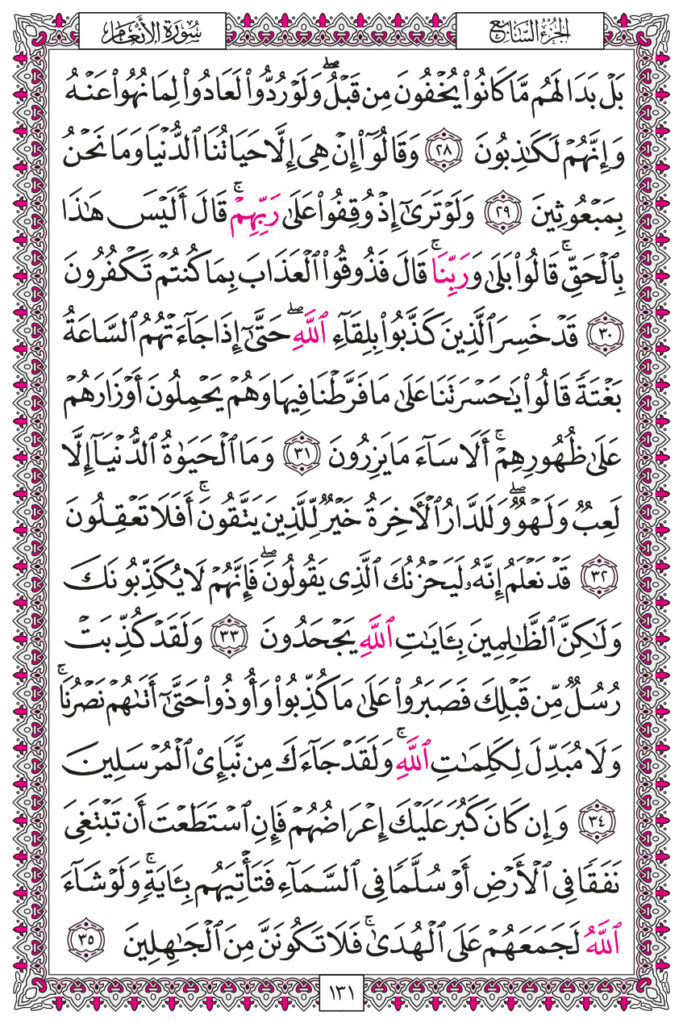 الجزء السابع
سورة الأنعام
بَلْ بَدَا لَهُم مَّا كَانُوا۟ يُخْفُونَ مِن قَبْلُ ۖ وَلَوْ رُدُّوا۟ لَعَادُوا۟ لِمَا نُهُوا۟ عَنْهُ
وَإِنَّهُمْ لَكَٰذِبُونَ ٢٨ وَقَالُوٓا۟ إِنْ هِىَ إِلَّا حَيَاتُنَا ٱلدُّنْيَا وَمَا نَحْنُ
بِمَبْعُوثِينَ ٢٩ وَلَوْ تَرَىٰٓ إِذْ وُقِفُوا۟ عَلَىٰ رَبِّهِمْ ۚ قَالَ أَلَيْسَ هَٰذَا
بِٱلْحَقِّ ۚ قَالُوا۟ بَلَىٰ وَرَبِّنَا ۚ قَالَ فَذُوقُوا۟ ٱلْعَذَابَ بِمَا كُنتُمْ تَكْفُرُونَ
٣٠ قَدْ خَسِرَ ٱلَّذِينَ كَذَّبُوا۟ بِلِقَآءِ ٱللَّهِ ۖ حَتَّىٰٓ إِذَا جَآءَتْهُمُ ٱلسَّاعَةُ
بَغْتَةً قَالُوا۟ يَٰحَسْرَتَنَا عَلَىٰ مَا فَرَّطْنَا فِيهَا وَهُمْ يَحْمِلُونَ أَوْزَارَهُمْ
عَلَىٰ ظُهُورِهِمْ ۚ أَلَا سَآءَ مَا يَزِرُونَ ٣١ وَمَا ٱلْحَيَوٰةُ ٱلدُّنْيَآ إِلَّا
لَعِبٌ وَلَهْوٌ ۖ وَلَلدَّارُ ٱلْأَخِرَةُ خَيْرٌ لِّلَّذِينَ يَتَّقُونَ ۗ أَفَلَا تَعْقِلُونَ
٣٢ قَدْ نَعْلَمُ إِنَّهُۥ لَيَحْزُنُكَ ٱلَّذِى يَقُولُونَ ۖ فَإِنَّهُمْ لَا يُكَذِّبُونَكَ
وَلَٰكِنَّ ٱلظَّٰلِمِينَ بِـَٔايَٰتِ ٱللَّهِ يَجْحَدُونَ ٣٣ وَلَقَدْ كُذِّبَتْ
رُسُلٌ مِّن قَبْلِكَ فَصَبَرُوا۟ عَلَىٰ مَا كُذِّبُوا۟ وَأُوذُوا۟ حَتَّىٰٓ أَتَىٰهُمْ نَصْرُنَا ۚ
وَلَا مُبَدِّلَ لِكَلِمَٰتِ ٱللَّهِ ۚ وَلَقَدْ جَآءَكَ مِن نَّبَإِى۟ ٱلْمُرْسَلِينَ
٣٤ وَإِن كَانَ كَبُرَ عَلَيْكَ إِعْرَاضُهُمْ فَإِنِ ٱسْتَطَعْتَ أَن تَبْتَغِىَ
نَفَقًا فِى ٱلْأَرْضِ أَوْ سُلَّمًا فِى ٱلسَّمَآءِ فَتَأْتِيَهُم بِـَٔايَةٍ ۚ وَلَوْ شَآءَ
ٱللَّهُ لَجَمَعَهُمْ عَلَى ٱلْهُدَىٰ ۚ فَلَا تَكُونَنَّ مِنَ ٱلْجَٰهِلِينَ ٣٥
١٣١